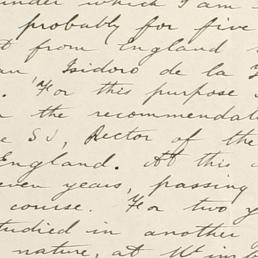 under which I am
probably for five
from England
Isidoro de la
. For this purpose
the recommendat
SJ, Rector of the
England. At this
even years, passing
course. For two y
tudied in another
nature, at W